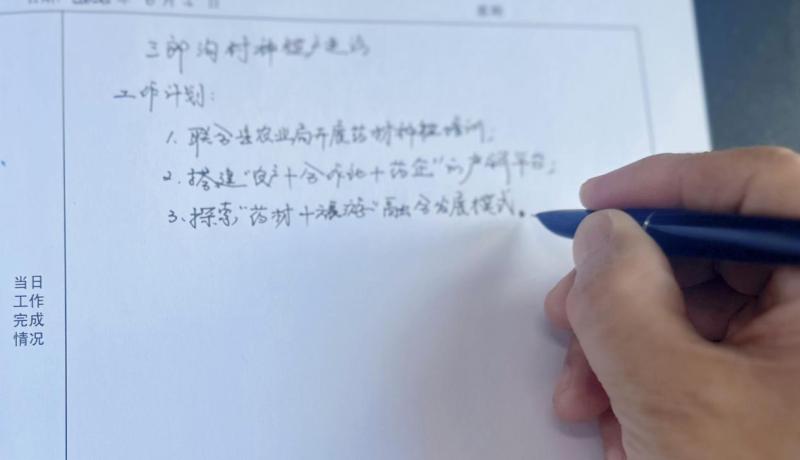 年6月4日
星期
三郎沟村种植户走访
工作计划:
1. 联合县农业局开展药材种植培训;
2. 搭建"农户+合作社+药企"的产销平台;
3. 探索"药材+旅游"融合发展模式。
当日
工作
完成
情况